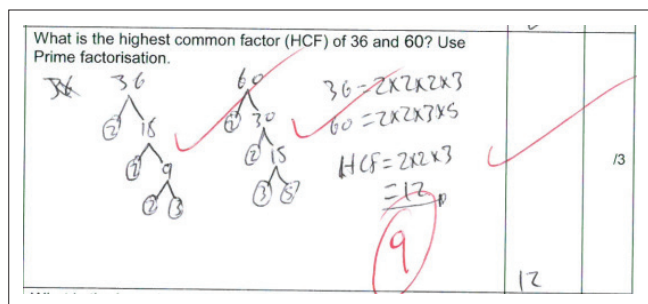 What is the highest common factor (HCF) of 36 and 60? Use
Prime factorisation.
36 60
2 18 2 30
2 9 2 15
2 3 3 5
36=2×2×2×3
60=2×2×3×5
HCF=2×2×3
=12
9
/3
12